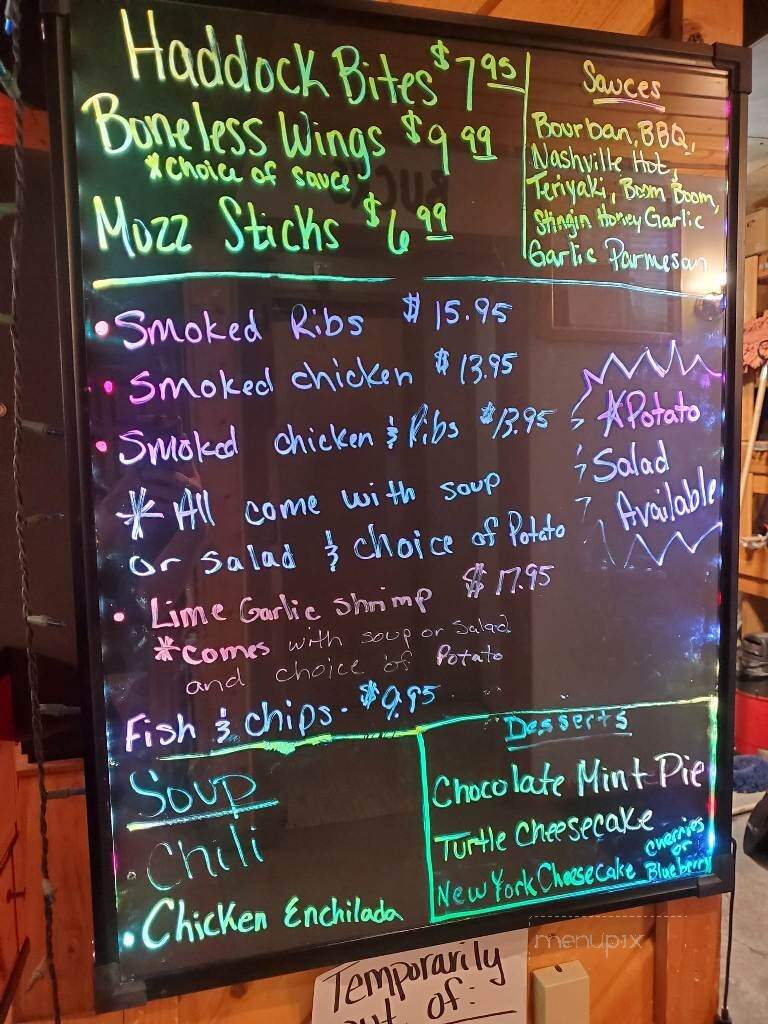 Haddock Bites $7.95
Boneless Wings $9.99
*Choice of sauce
Mozz Sticks $6.99
Sauces
Bourban, BBQ,
Nashville Hot,
Teriyaki, Boom Boom,
Stingin Honey Garlic
Garlic Parmesan
• Smoked Ribs $15.95
• Smoked chicken $13.95
• Smoked chicken & Ribs $13.95
* All come with soup
or salad & choice of Potato
*Potato
Salad
Available
• Lime Garlic shrimp $17.95
*comes with soup or salad
and choice of Potato
Fish & chips. $9.95
Soup
• Chili
• Chicken Enchilada
Desserts
Chocolate Mint Pie
Turtle Cheesecake
New York Cheesecake cherries or Blueberry
menupix
Temporarily
out of: